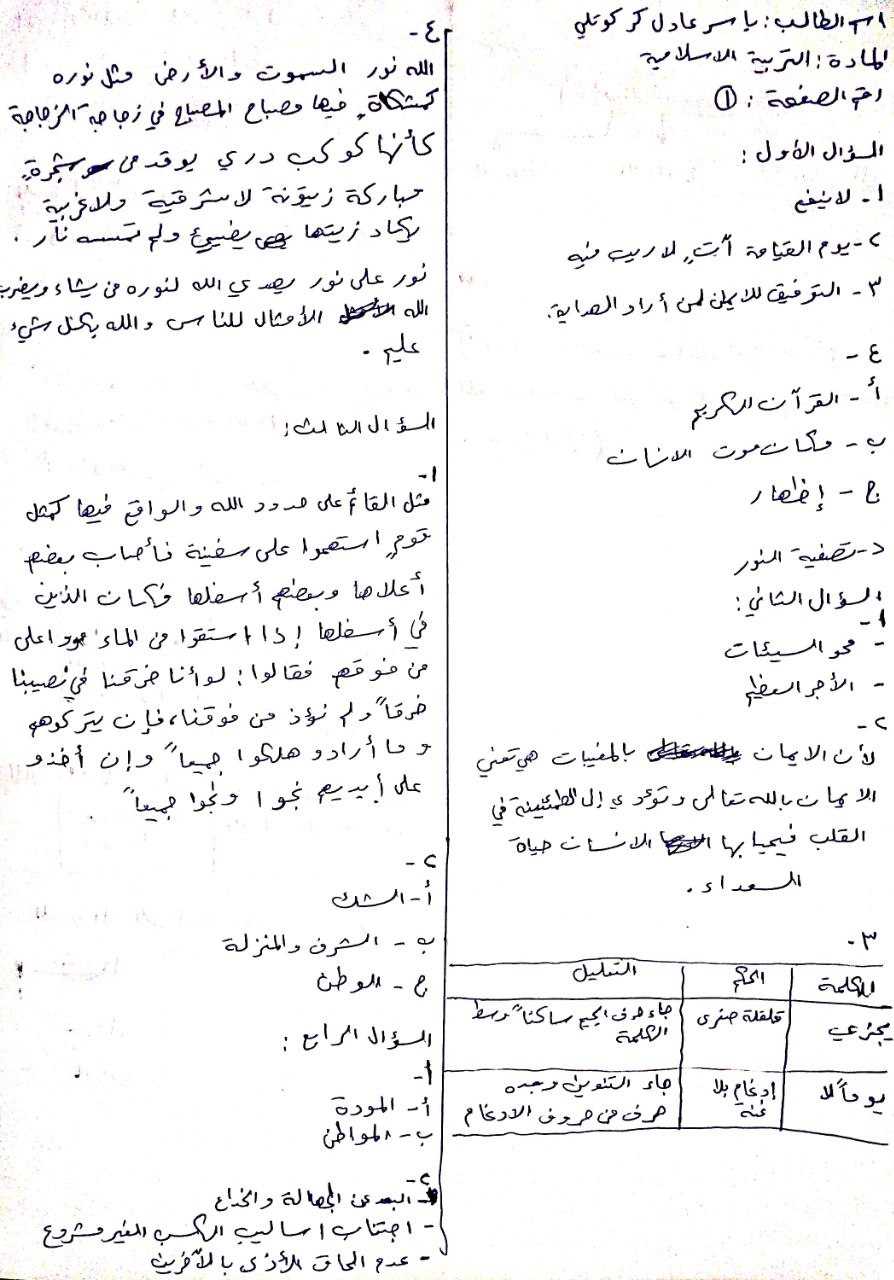 اسم الطالب: ياسر عادل كركوتلي
المادة: التربية الاسلامية
رقم الصفحة: ①
السؤال الأول:
١- لا ينفع
٢- يوم القيامة آتٍ لا ريب فيه
٣- التوفيق للايمان لمن أراد الهداية.
٤-
أ- القرآن الكريم
ب- مكان موت الانسان
ج- إظهار
د- تصفية النور
السؤال الثاني:
١-
- محو السيئات
- الأجر العظيم
٢-
لأن الايمان بالمغيبات هي تعني
الايمان بالله تعالى وتؤدي إلى الطمئنينة في
القلب فيحيا بها الانسان حياة
السعداء.
٣-
الكلمة الحكم التعليل
يجزي قلقلة صغرى جاء حرف الجيم ساكناً وسط
الكلمة
يوماً لا إدغام بلا جاء التنوين وبعده
غنة حرف من حروف الادغام
٤-
الله نور السموت والأرض مثل نوره
كمشكاةٍ فيها مصباح المصباح في زجاجة الزجاجة
كأنها كوكب دري يوقد من شجرةٍ
مباركة زيتونة لا شرقية ولا غربية
يكاد زيتها يضيئ ولم تمسسه نار.
نور على نور يهدي الله لنوره من يشاء ويضرب
الله الأمثال للناس والله بكل شيء
عليم.
السؤال الثالث:
١-
مثل القائم على حدود الله والواقع فيها كمثل
قومٍ استهموا على سفينة فأصاب بعضهم
أعلاها وبعضهم أسفلها فكان الذين
في أسفلها إذا استقوا من الماء مروا على
من فوقهم فقالوا: لو أنا خرقنا في نصيبنا
خرقاً ولم نؤذ من فوقنا، فإن يتركوهم
وما أرادو هلكوا جميعاً وإن أخذو
على أيديهم نجوا ونجوا جميعاً.
٢-
أ- الشك
ب- الشرف والمنزلة
ج- الوطن
السؤال الرابع:
١-
أ- المودة
ب- المواطن
٢-
- البعد عن الجهالة والخداع
- اجتناب اساليب الكسب الغير مشروع
- عدم الحاق الأذى بالآخرين